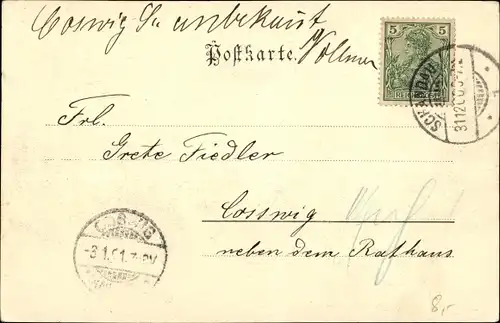 Coswig Sa unbekannt
Vollmer
Postkarte.
5 5
REICHSPOST
SCHANDAU
31.12.00.
Frl.
Grete Fiedler
Cosswig
neben dem Rathaus
-3.1.01.
8,-